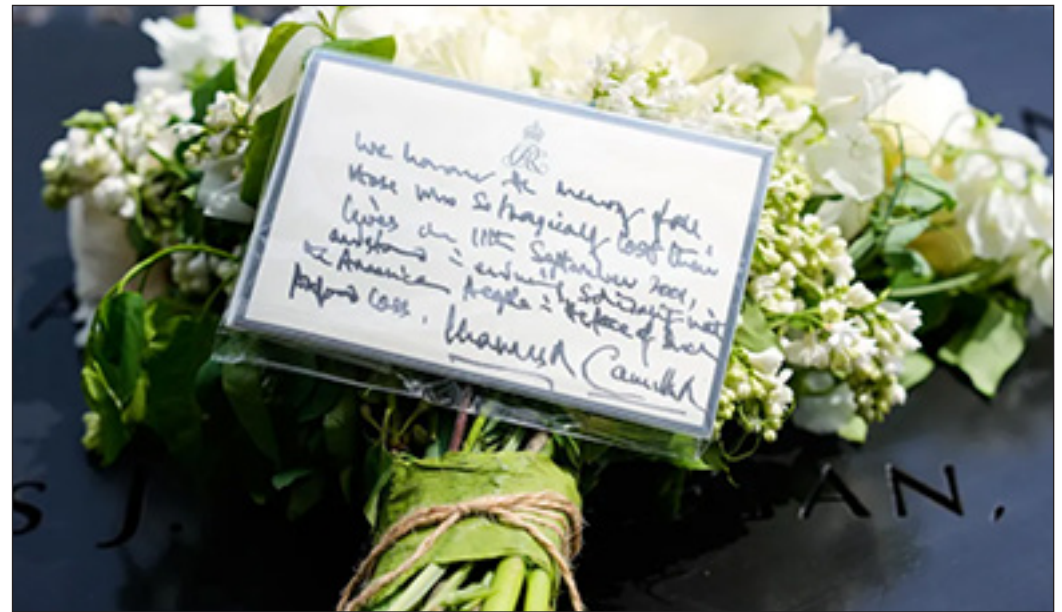 We honour the memory of all
those who so tragically lost their
lives on 11th September 2001,
and stand in enduring solidarity with
the American People in the face of such
profound loss.
Charles R Camilla R
S J.
AN,